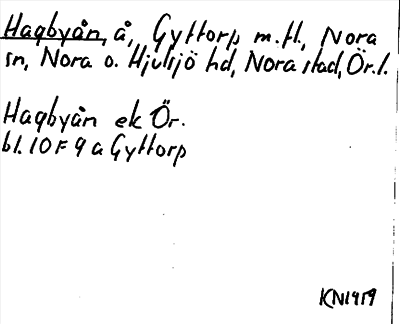 Hagbyån, å, Gyttorp m.fl., Nora
sn, Nora o. Hjulsjö hd, Nora stad, Ör. l.
Hagbyån ek Ör.
bl. 10 F 9 a Gyttorp
KN1959